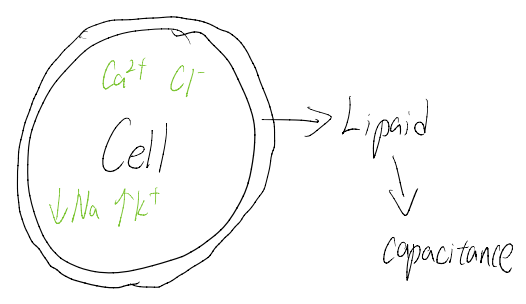 Ca²⁺ Cl⁻
Cell
↓Na ↑K⁺
Lipaid
Capacitance